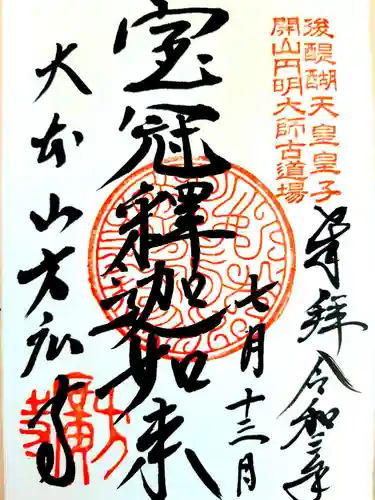 後醍醐天皇皇子
開山円明大師古道場
奉拝 令和三年
七月十三日
宝冠釋迦如来
大本山方広寺
方廣寺